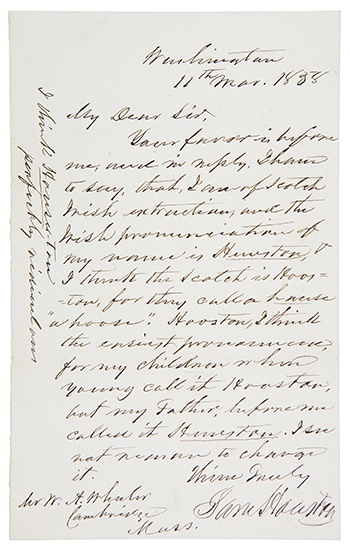 Washington
11th Mar. 1858
My Dear Sir,
Your favor is before
me, and in reply, I have
to say, that, I am of Scotch
Irish extraction, and the
Irish pronunciation of
my name is Hewston, &
I think the Scotch is Hoos-
=ton, for they call a house
"a hoose". Hooston, I think
the easiest pronounced,
for my children when
young call it Hooston,
but my Father, before me
called it Hewston. I see
not reason to change
it.
Thine Truly
Sam Houston
Mr W. A. Wheeler
Cambridge
Mass.
I think Howseton
perfectly ridiculous